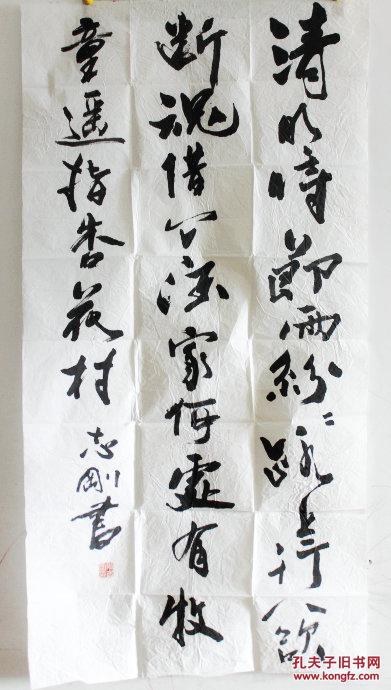 清明時節雨紛〻路上行人欲
断魂借问酒家何處有牧
童遥指杏花村
志剛書
孔夫子旧书网
www.kongfz.com